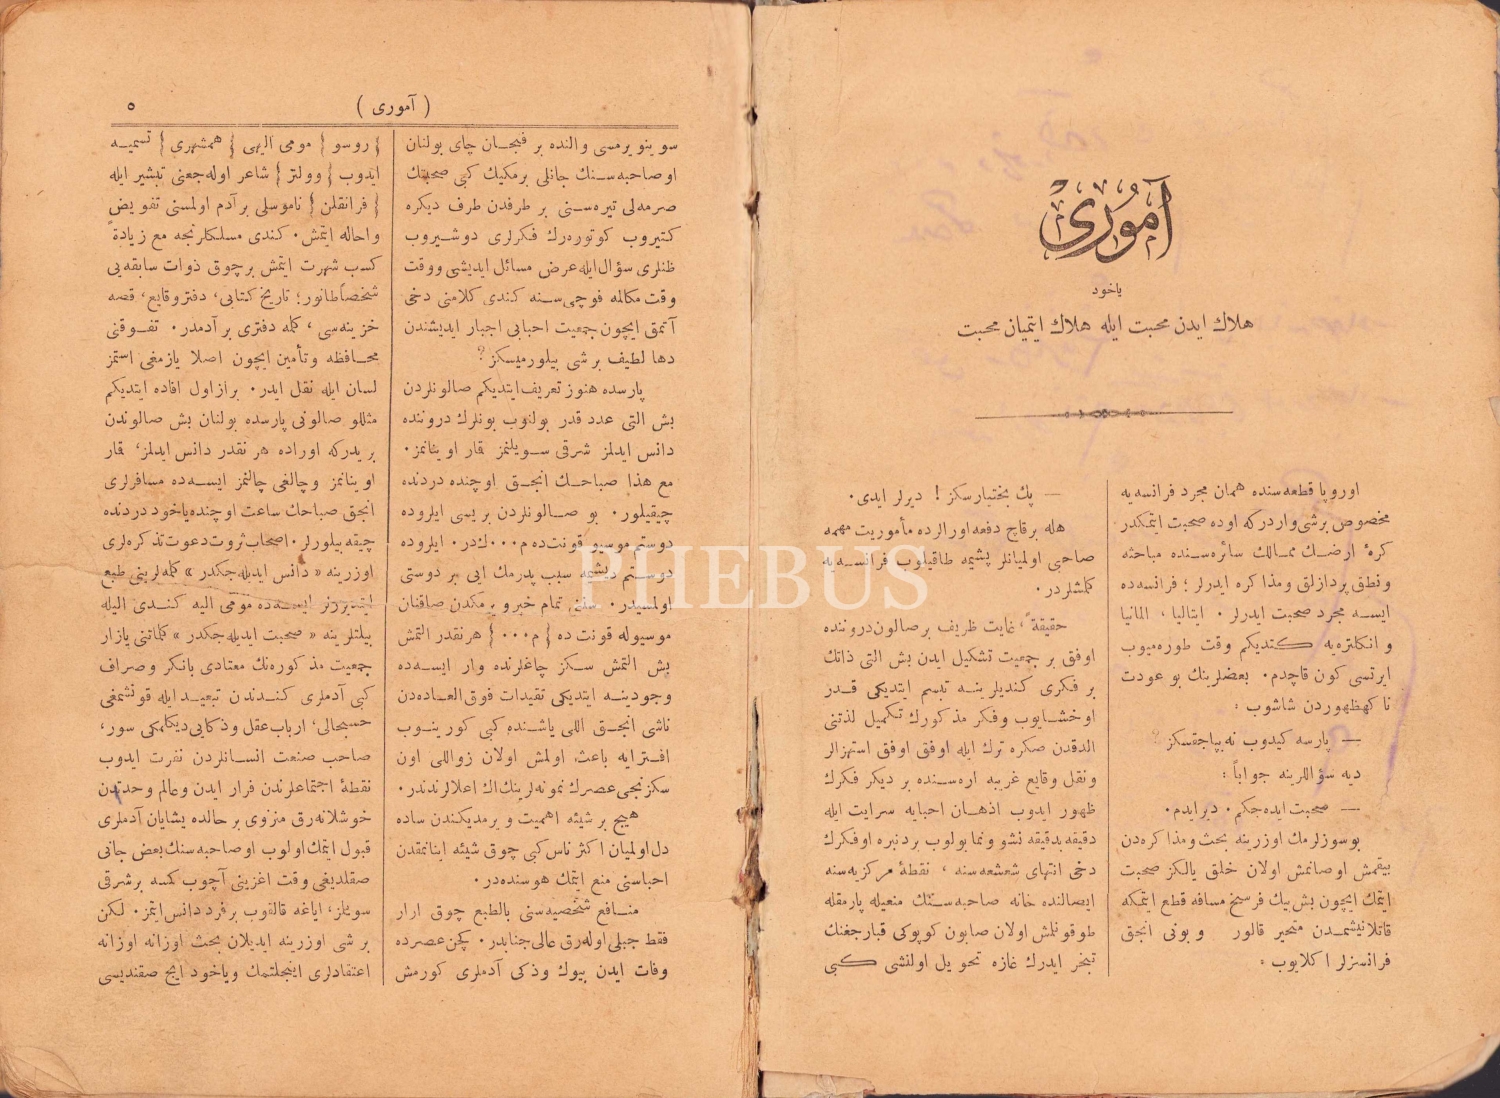 آموری
یاخود
هلاك ایدن محبت ایله هلاك ایتمیان محبت
اوروپا قطعه‌سنده همان مجرد فرانسه‌یه
مخصوص برشی واردركه اوده صحبت ایتمكدر
كرهٔ ارضك ممالك سائره‌سنده مباحثه
ونطق پردازلق ومذاكره ایدرلر؛ فرانسه‌ده
ایسه مجرد صحبت ایدرلر. ایتالیا، المانیا
و انكلتره‌یه كتدیكم وقت طوره‌میوب
ایرتسی كون قاچدم. بعضلرینك بو عودت
ناكهظهوردن شاشوب:
— پارسه كیدوب نه‌یپاجقسكز؟
دیه سؤاللرینه جواباً:
— صحبت ایده‌جكم. دیرایدم.
بوسوزلرمك اوزرینه بحث ومذاكره‌دن
بیقمش اوصانمش اولان خلق یالكز صحبت
ایتمك ایچون بش بیك فرسخ مسافه قطع ایتمكه
قاتلانیشمدن متحیر قالور و بونی انجق
فرانسزلر اكلایوب:
— پك بختیارسكز! دیرلر ایدی.
هله برقاچ دفعه‌اورالرده مأموریت مهمه
صاحبی اولمیانلر پشیمه طاقیلوب فرانسه‌یه
كلمشلردر.
حقیقةً، غایت ظریف برصالون‌دروننده
اوفق بر جمعیت تشكیل ایدن بش التی ذاتك
بر فكری كندیلرینه تبسم ایتدیكی قدر
اوخشایوب وفكر مذكورك تكمیل لذتنی
الدقدن صكره ترك ایله اوفق اوفق استهزالر
ونقل وقایع غریبه اره‌سنده بر دیكر فكرك
ظهور ایدوب اذهان احبایه سرایت ایله
دقیقه‌بدقیقه نشو ونما بولوب بردنبره اوفكرك
دخی انتهای شعشعه‌سنه، نقطهٔ مركزیه‌سنه
ایصالنده خانه صاحبه‌سنك منعیله پارمقله
طوقونلمش اولان صابون كوپوكی قبارجغنك
تبخر ایدرك غازه تحویل اولنشی كبی
(آموری) ٥
سوینویرمسی والنده بر فنجان چای بولنان
اوصاحبه‌سنك جانلی برمكیك كبی صحبتك
صرمه‌لی تیره‌سنی بر طرفدن طرف دیكره
كتیروب كوتوره‌رك فكرلری دوشیروب
ظنلری سؤال‌ایله‌عرض مسائل ایدیشی ووقت
وقت مكالمه فوچی‌سنه كندی كلامنی دخی
آتمق ایچون‌جمعیت احبابی اجبار ایدیشندن
دها لطیف برشی بیلورمیسكز؟
پارسده هنوز تعریف‌ایتدیكم صالونلردن
بش التی عدد قدر بولنوب بونلرك دروننده
دانس ایدلمز شرقی سویلنمز قار اوینانمز.
مع هذا صباحك انجق اوچنده دردنده
چیقیلور. بو صالونلردن بریسی ایلروده
دوستم موسیو قونت‌ده م...ك‌در. ایلروده
دوستم دیشمه سبب پدرمك ایی بر دوستی
اولمسیدر.
موسیوله قونت ده {م...} هرنقدر التمش
بش التمش سكز چاغلرنده وار ایسه‌ده
وجودینه ایتدیكی تقیدات فوق‌العاده‌دن
ناشی انجق اللی یاشنده كبی كورینوب
افترایه باعث اولمش اولان زواللی اون
سكزنجی عصرك نمونه‌لرینك‌اك اعلالرندندر.
هیچ برشیئه اهمیت ویرمدیكندن ساده
دل‌اولمیان اكثر ناس‌كبی چوق شیئه اینانمقدن
احباسنی منع ایتمك هوسنده‌در.
منافع شخصیه‌سنی بالطبع چوق ارار
فقط جبلی اوله‌رق عالی‌جنابدر. كچن‌عصرده
وفات ایدن بیوك وذكی آدملری كورمش
{روسو} مومی الیهی {همشهری} تسمیه
ایدوب {وولتر} شاعر اوله‌جغنی تبشیر ایله
{فرانقلن} ناموسلی برآدم اولمسنی تفویض
واحاله ایتمش. كندی مسلكلرنجه مع زیادةً
كسب شهرت ایتمش برچوق ذوات سابقه‌یی
شخصاًطانور؛ تاریخ كتابی، دفتروقایع، قصه
خزینه‌سی، كله دفتری برآدمدر. تفوقنی
محافظه وتأمین ایچون اصلا یازمغی استمز
لسان ایله نقل ایدر. برازاول افاده ایتدیكم
مثللو صالونی پارسده بولنان بش صالوندن
بریدركه اوراده هرنقدر دانس ایدلمز، قار
اوینانمز وچالغی چالنمز ایسه‌ده مسافرلری
انجق صباحك ساعت اوچنده‌یاخود دردنده
چیقه‌بیلورلر. اصحاب ثروت دعوت تذكره‌لری
اوزرینه «دانس ایدیله‌جكدر» كله‌لرینی طبع
ایتدیررلر ایسه‌ده مومی الیه كندی الیله
بیلتلرینه «صحبت ایدیله‌جكدر» كلماتنی یازار
جمعیت مذكوره‌نك معتادی بانكر وصراف
كبی آدملری كندندن تبعید ایله قونشمغی
حسبحالی، ارباب عقل وذكایی دیكلمكی سور،
صاحب صنعت انسانلردن نفرت ایدوب
نقطهٔ اجتماعلرندن فرار ایدن وعالم وحدتدن
خوشلانه‌رق منزوی برحالده یشایان آدملری
قبول ایتمك‌اولوب اوصاحبه‌سنك‌بعض جانی
صقلدیغی وقت اغزینی آچوب كمسه برشرقی
سویلمز، ایاغه قالقوب برفرد دانس‌ایتمز. لكن
برشی اوزرینه ایدیلان بحث اوزانه اوزانه
اعتقادلری اینجلتمك ویاخود ایچ صقندیسی
PHEBUS